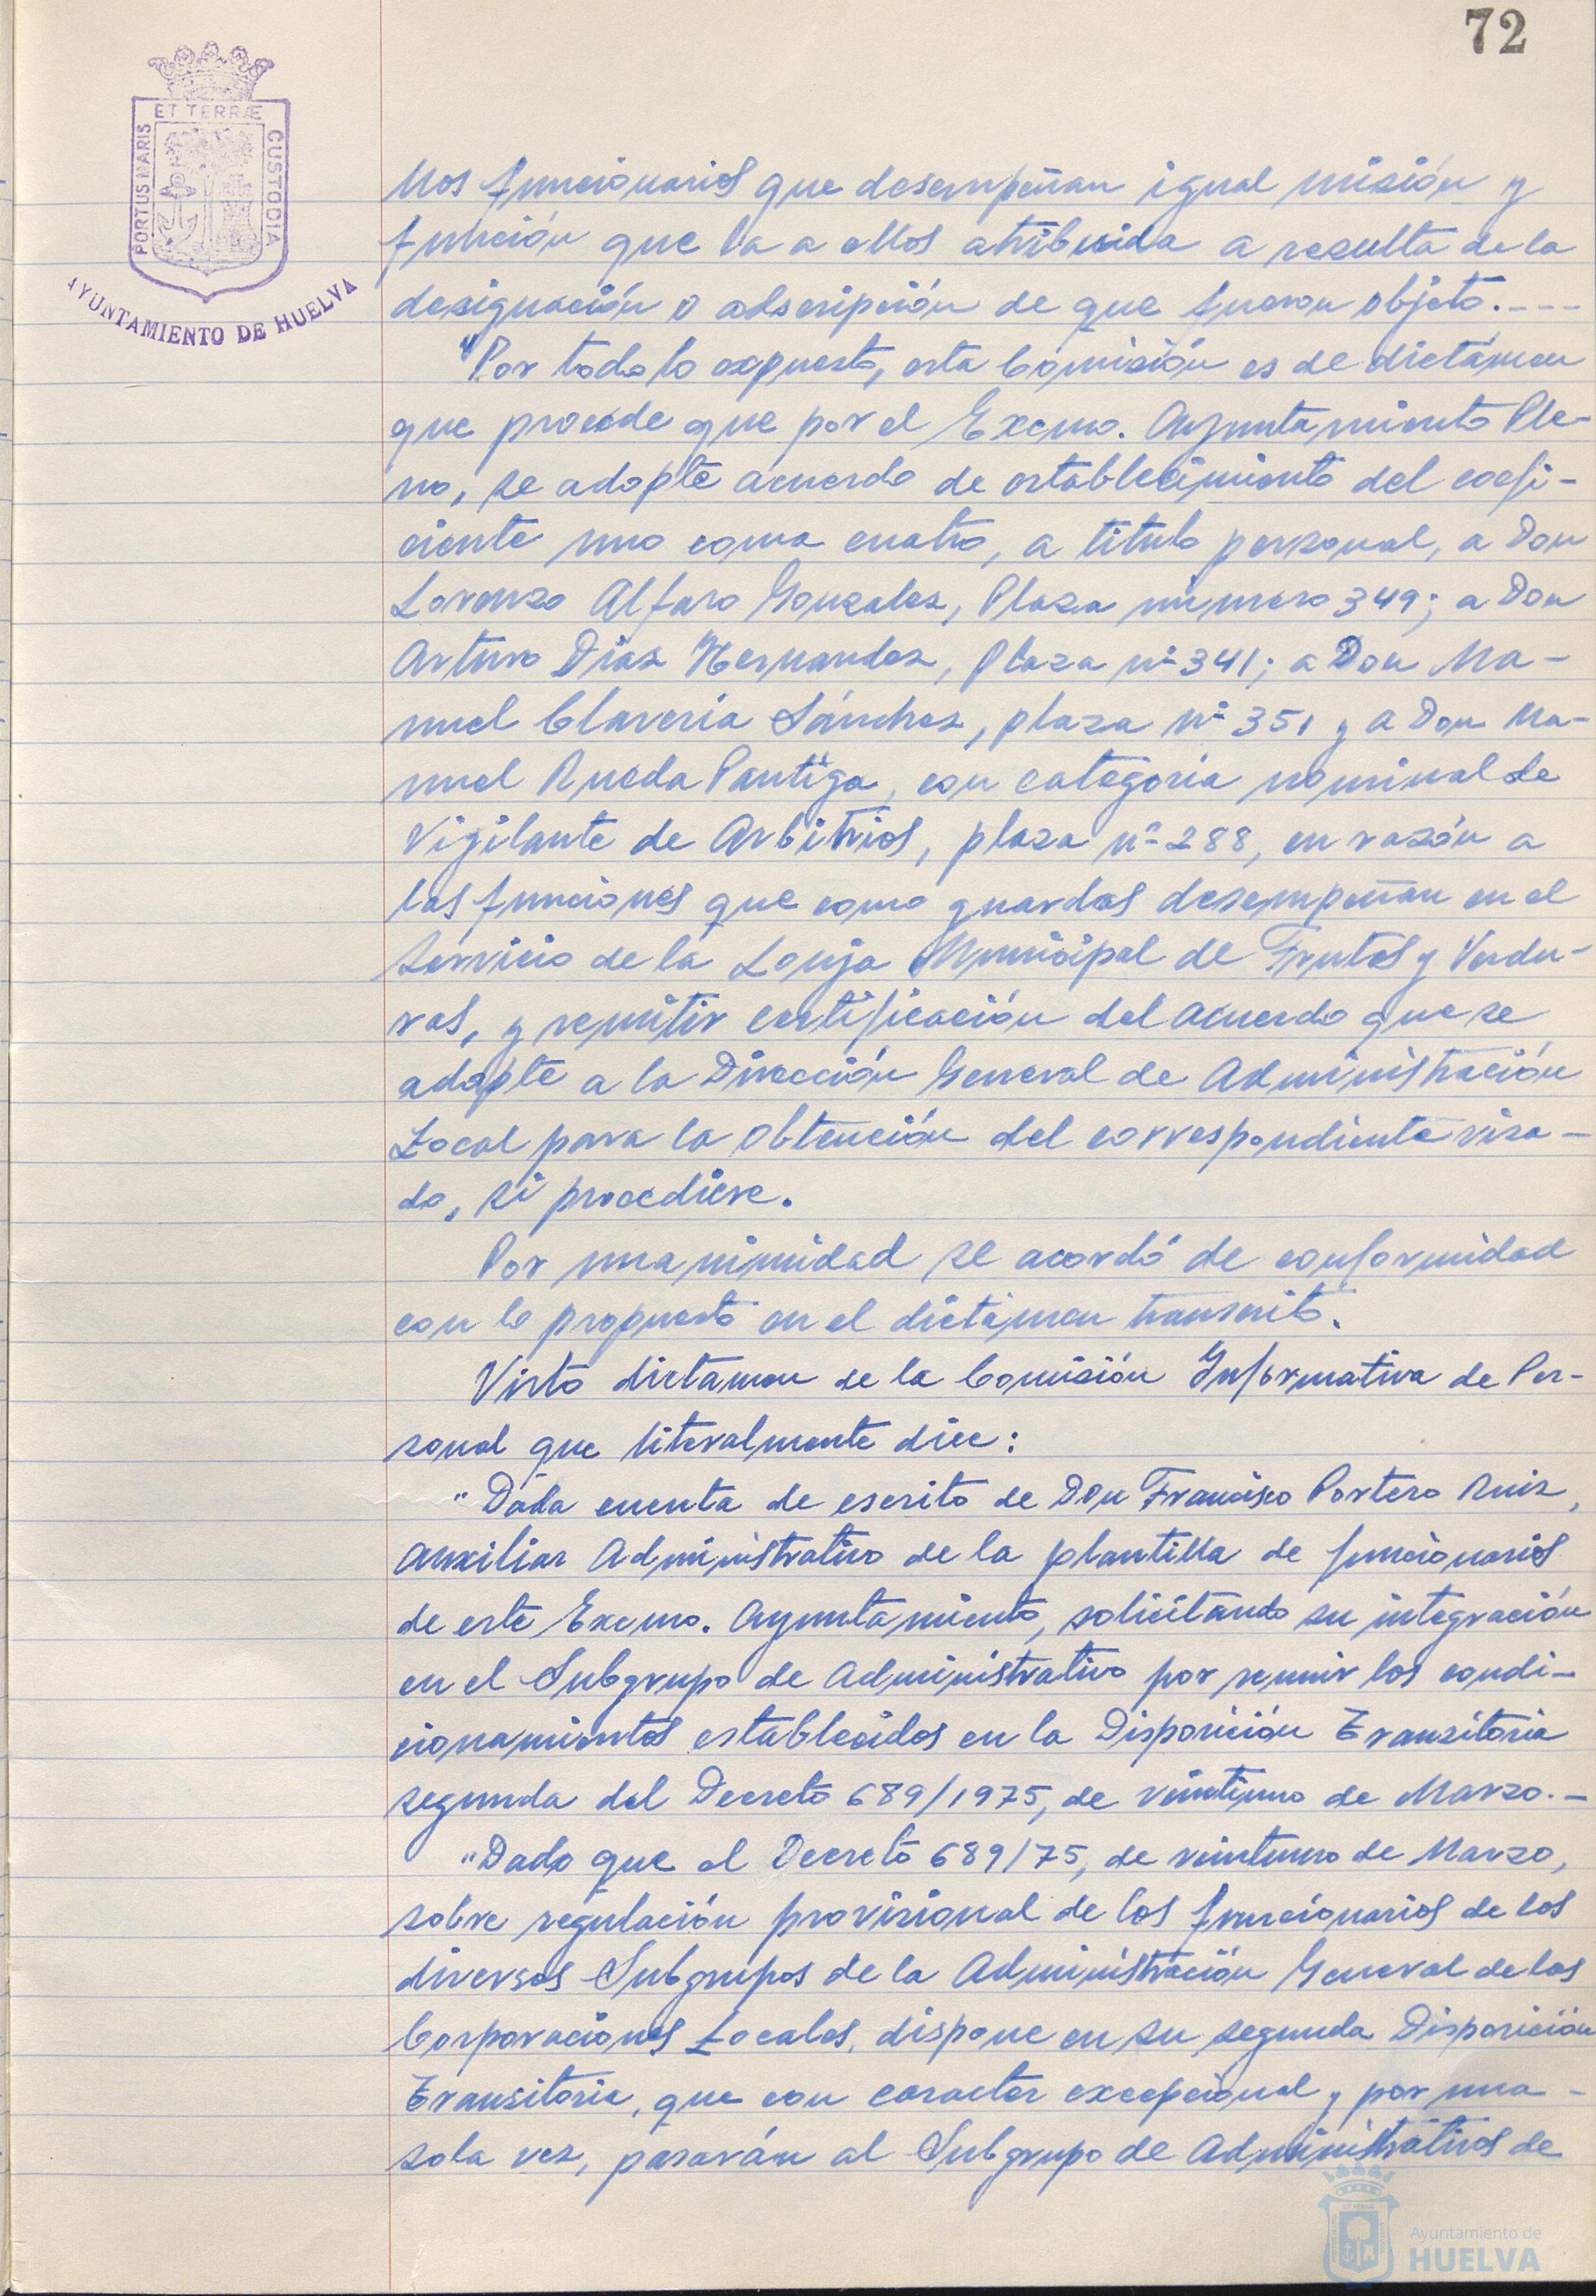 72
ET TERRÆ
PORTUS MARIS
CUSTODIA
AYUNTAMIENTO DE HUELVA
llos funcionarios que desempeñan igual misión y
función que la a ellos atribuida a resulta de la
designación o adscripción de que fueron objeto.----
"Por todo lo expuesto, esta Comisión es de dictámen
que procede que por el Excmo. Ayuntamiento Ple-
no, se adopte acuerdo de establecimiento del coefi-
ciente uno coma cuatro, a titulo personal, a Don
Lorenzo Alfaro Gonzalez, Plaza número 349; a Don
Arturo Diaz Hernandez, Plaza nº 341; a Don Ma-
nuel Claveria Sánchez, plaza nº 351 y a Don Ma-
nuel Rueda Pantiga, con categoria nominal de
Vigilante de Arbitrios, plaza nº 288, en razón a
las funciones que como guardas desempeñan en el
Servicio de la Lonja Municipal de Frutas y Verdu-
ras, y remitir certificación del acuerdo que se
adopte a la Dirección General de Administración
Local para la obtención del correspondiente visa-
do, si procediere.
Por unanimidad se acordó de conformidad
con lo propuesto en el dictámen transcrito.
Visto dictamen de la Comisión Informativa de Per-
sonal que literalmente dice:
"Dada cuenta de escrito de Don Francisco Portero Ruiz,
Auxiliar Administrativo de la plantilla de funcionarios
de este Excmo. Ayuntamiento, solicitando su integración
en el Subgrupo de Administrativo por reunir los condi-
cionamientos establecidos en la Disposición Transitoria
segunda del Decreto 689/1975, de veintiuno de Marzo.-
"Dado que el Decreto 689/75, de veintuno de Marzo,
sobre regulación provisional de los funcionarios de los
diversos Subgrupos de la Administración General de las
Corporaciones Locales, dispone en su segunda Disposición
Transitoria, que con caracter excepcional y por una-
sola vez, pasarán al Subgrupo de Administrativos de
Ayuntamiento de
HUELVA